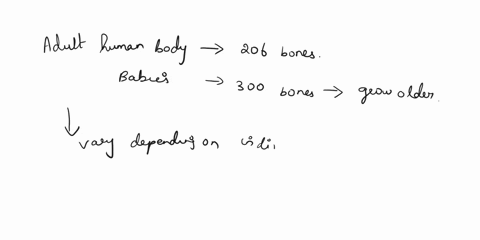 Adult human body → 206 bones.
Babies → 300 bones → grow older.
↓ vary depending on indi